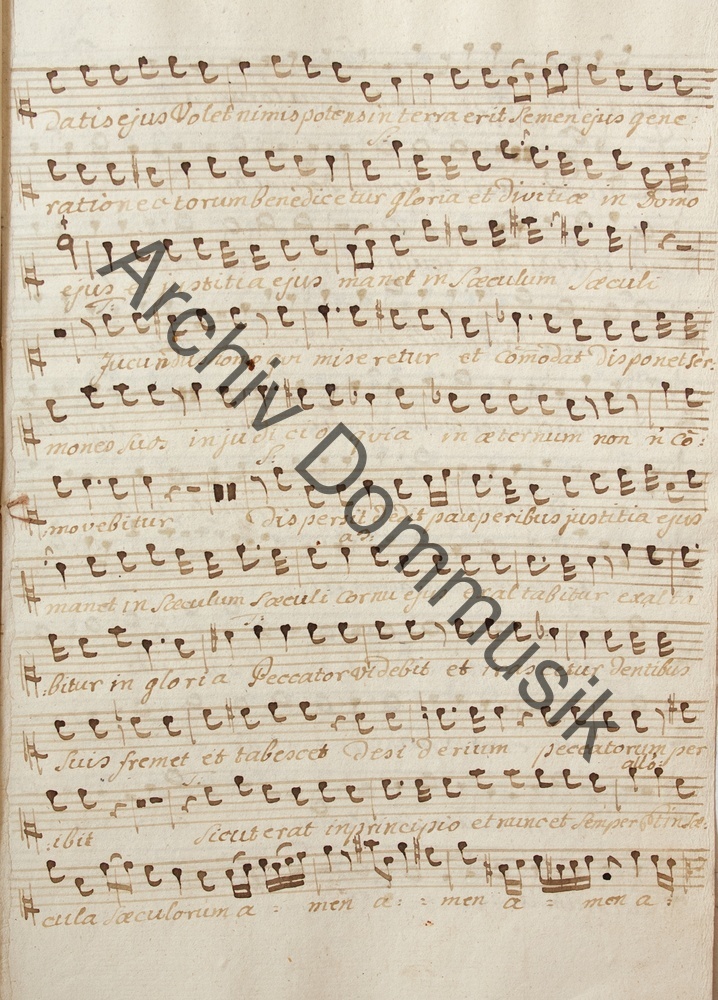 datis ejus Volet nimis potens in terra erit Semen ejus gene:
S:
ratione rectorum benedicetur gloria et divitiæ in Domo
ejus et justitia ejus manet in Sæculum Sæculi
T:
Jucundus homo qui miseretur et comodat disponet ser:
mones suos in judicio quia in æternum non n co:
S:
:movebitur dispersit dedit pauperibus justitia ejus
manet in Sæculum Sæculi Cornu ejus exaltabitur exalta
:bitur in gloria Peccator videbit et irascetur dentibus
Suis fremet et tabescet desiderium peccatorum per
T:
:ibit Sicut erat in principio et nunc et Semper Et in Sæ:
cula Sæculorum a = men a: = men a = men a:
Archiv Dommusik